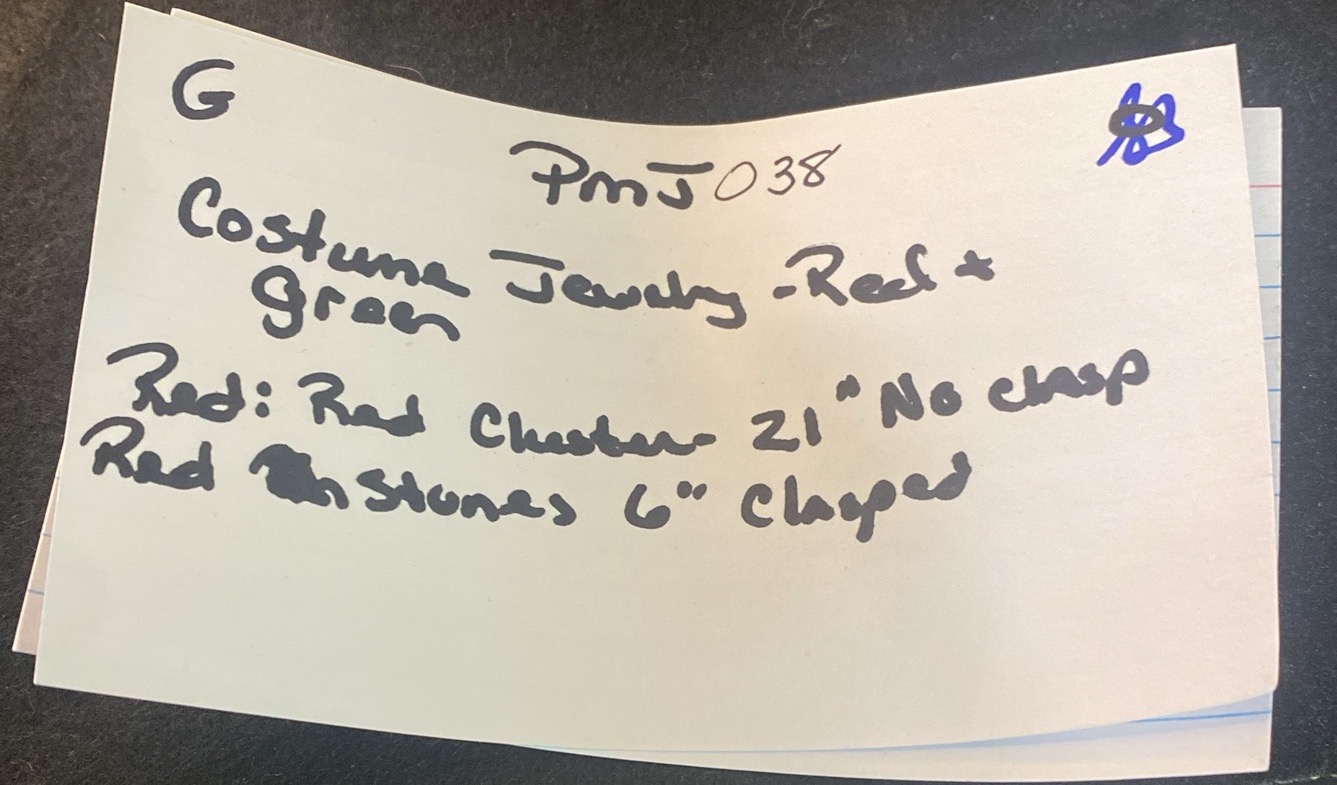 G
PmJ 038
Costume Jewelry - Red +
green
Red: Red Cluster - 21" No clasp
Red Stones 6" Clasped